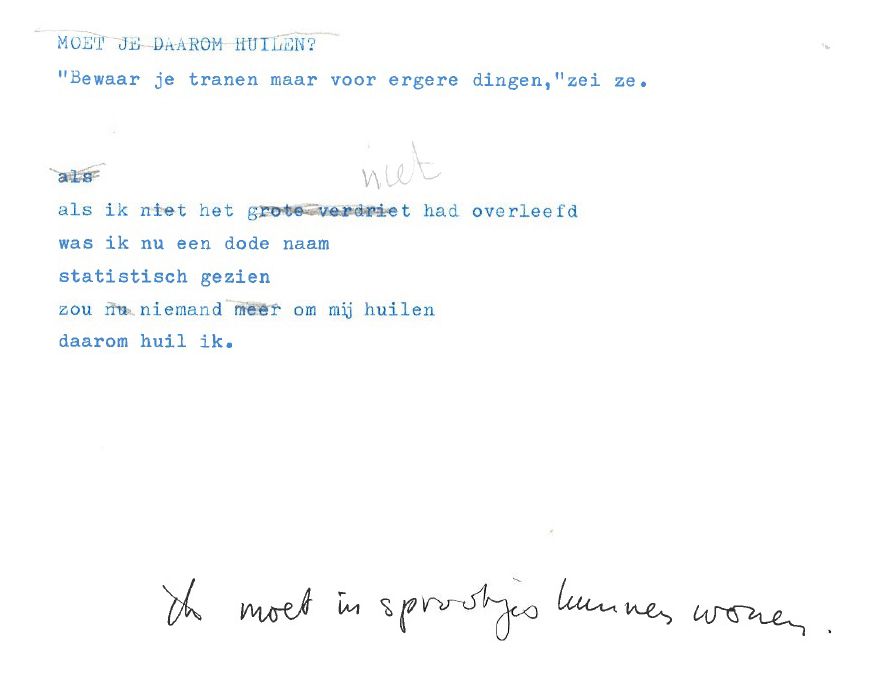 MOET JE DAAROM HUILEN?
"Bewaar je tranen maar voor ergere dingen,"zei ze.
als
niet
als ik niet het grote verdriet had overleefd
was ik nu een dode naam
statistisch gezien
zou nu niemand meer om mij huilen
daarom huil ik.
Ik moet in sprookjes kunnen wonen.